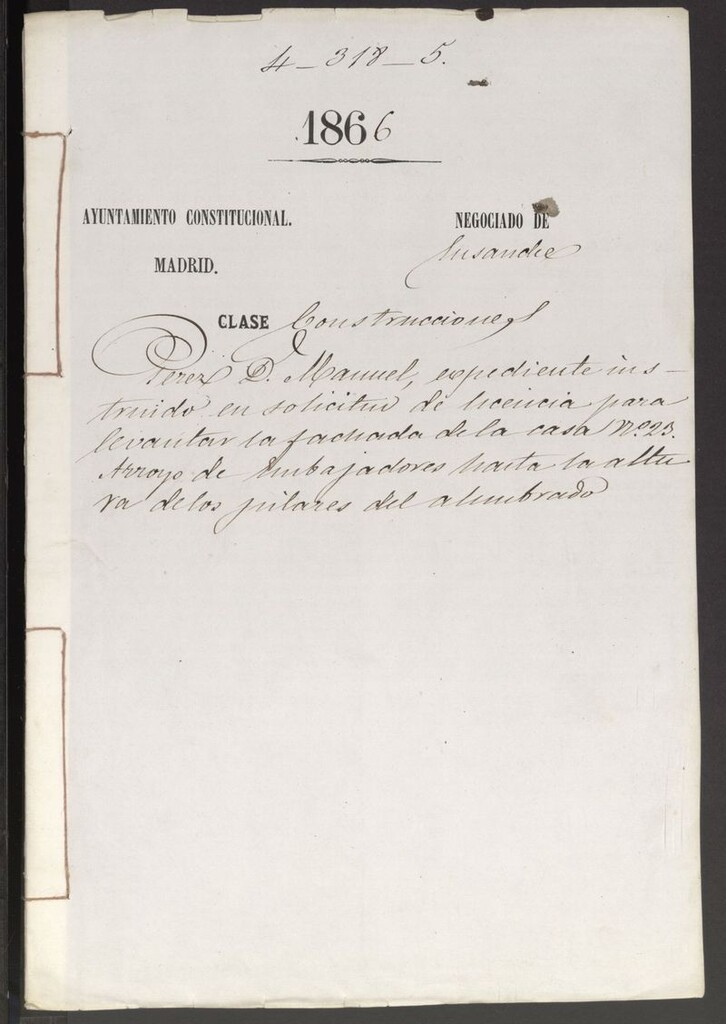 4-318-5.
1866
AYUNTAMIENTO CONSTITUCIONAL.
MADRID.
NEGOCIADO DE
Ensanche
CLASE Construcciones
Perez D. Manuel, expediente ins-
truido en solicitud de licencia para
levantar la fachada de la casa Nº 23.
Arroyo de Embajadores hasta la altu
ra de los pilares del alumbrado